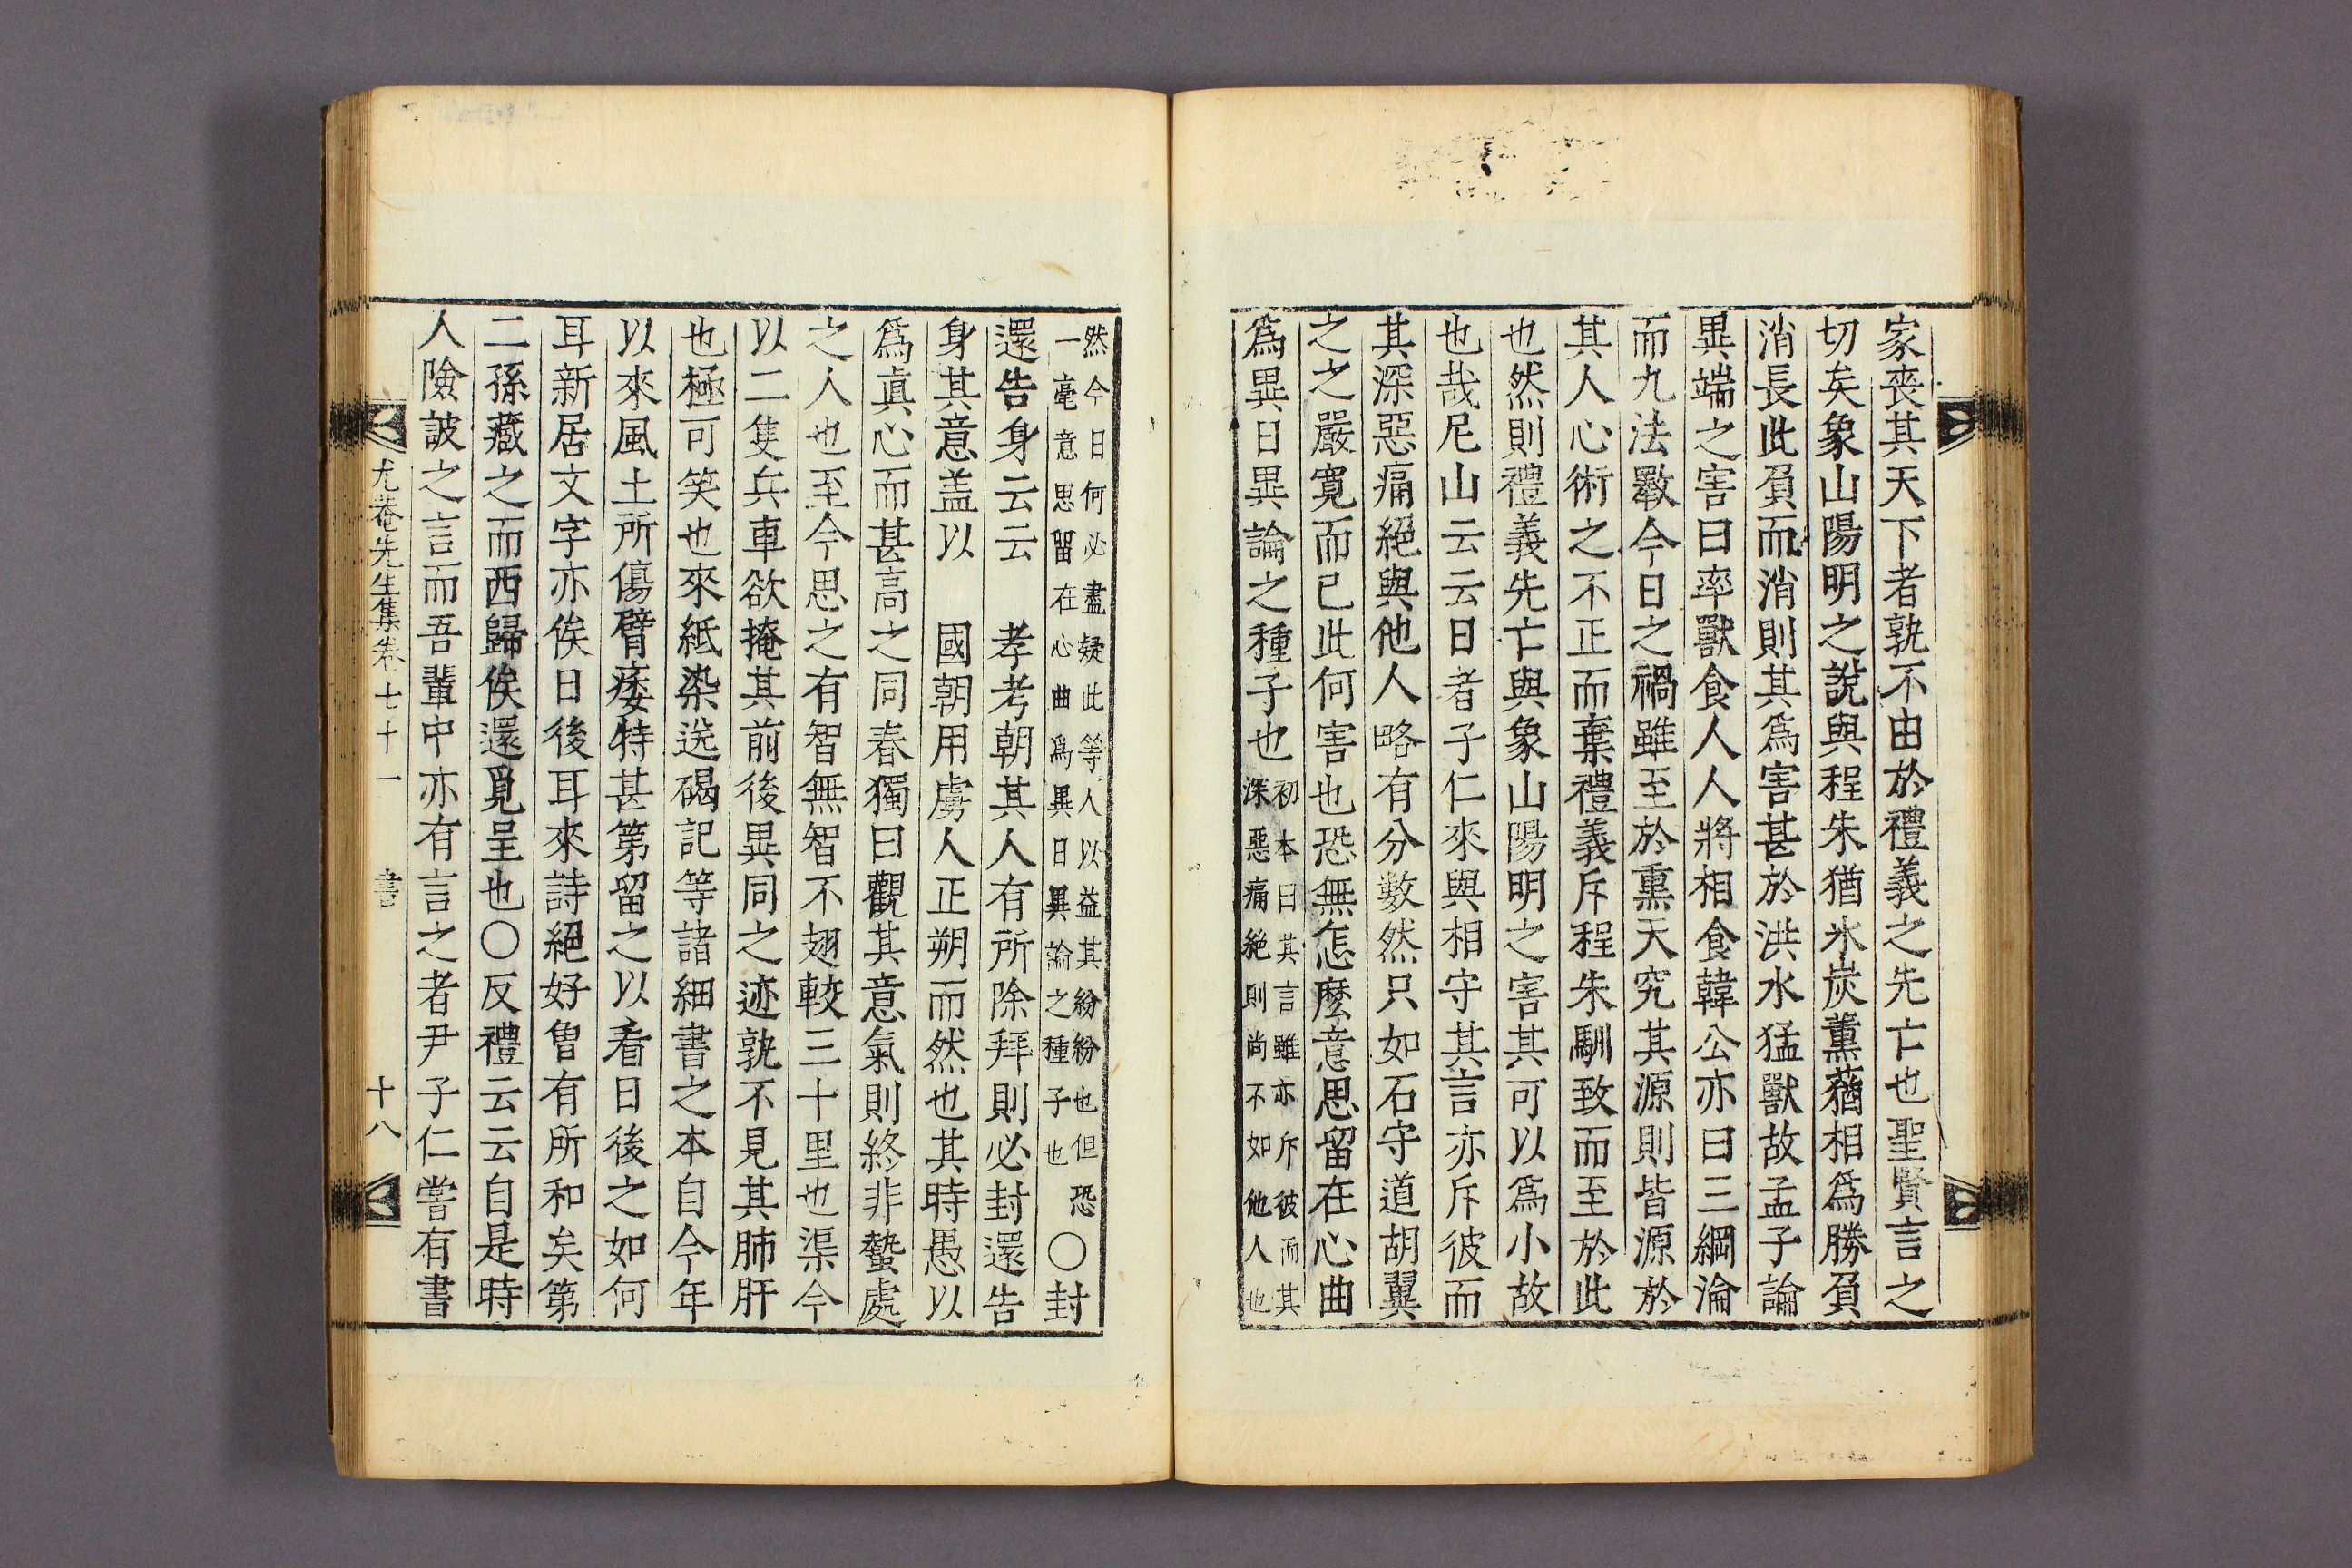 家喪其天下者孰不由於禮義之先亡也聖賢言之
切矣象山陽明之說與程朱猶氷炭薰蕕相爲勝負
消長此負而消則其爲害甚於洪水猛獸故孟子論
異端之害曰率獸食人人將相食韓公亦曰三綱淪
而九法斁今日之禍雖至於熏天究其源則皆源於
其人心術之不正而棄禮義斥程朱馴致而至於此
也然則禮義先亡與象山陽明之害其可以爲小故
也哉尼山云云日者子仁來與相守其言亦斥彼而
其深惡痛絕與他人略有分數然只如石守道胡翼
之之嚴寬而已此何害也恐無怎麼意思留在心曲
爲異日異論之種子也
初本曰其言雖亦斥彼而其
深惡痛絕則尚不如他人也
然今日何必盡疑此等人以益其紛紛也但恐
一毫意思留在心曲爲異日異論之種子也
○封
還告身云云　孝考朝其人有所除拜則必封還告
身其意盖以　國朝用虜人正朔而然也其時愚以
爲眞心而甚高之同春獨曰觀其意氣則終非蟄處
之人也至今思之有智無智不翅較三十里也渠今
以二隻兵車欲掩其前後異同之迹孰不見其肺肝
也極可笑也來紙染送碣記等諸細書之本自今年
以來風土所傷臂痿特甚第留之以看日後之如何
耳新居文字亦俟日後耳來詩絕好曾有所和矣第
二孫藏之而西歸俟還覓呈也○反禮云云自是時
人險詖之言而吾輩中亦有言之者尹子仁嘗有書
尤菴先生集卷七十一　書　十八